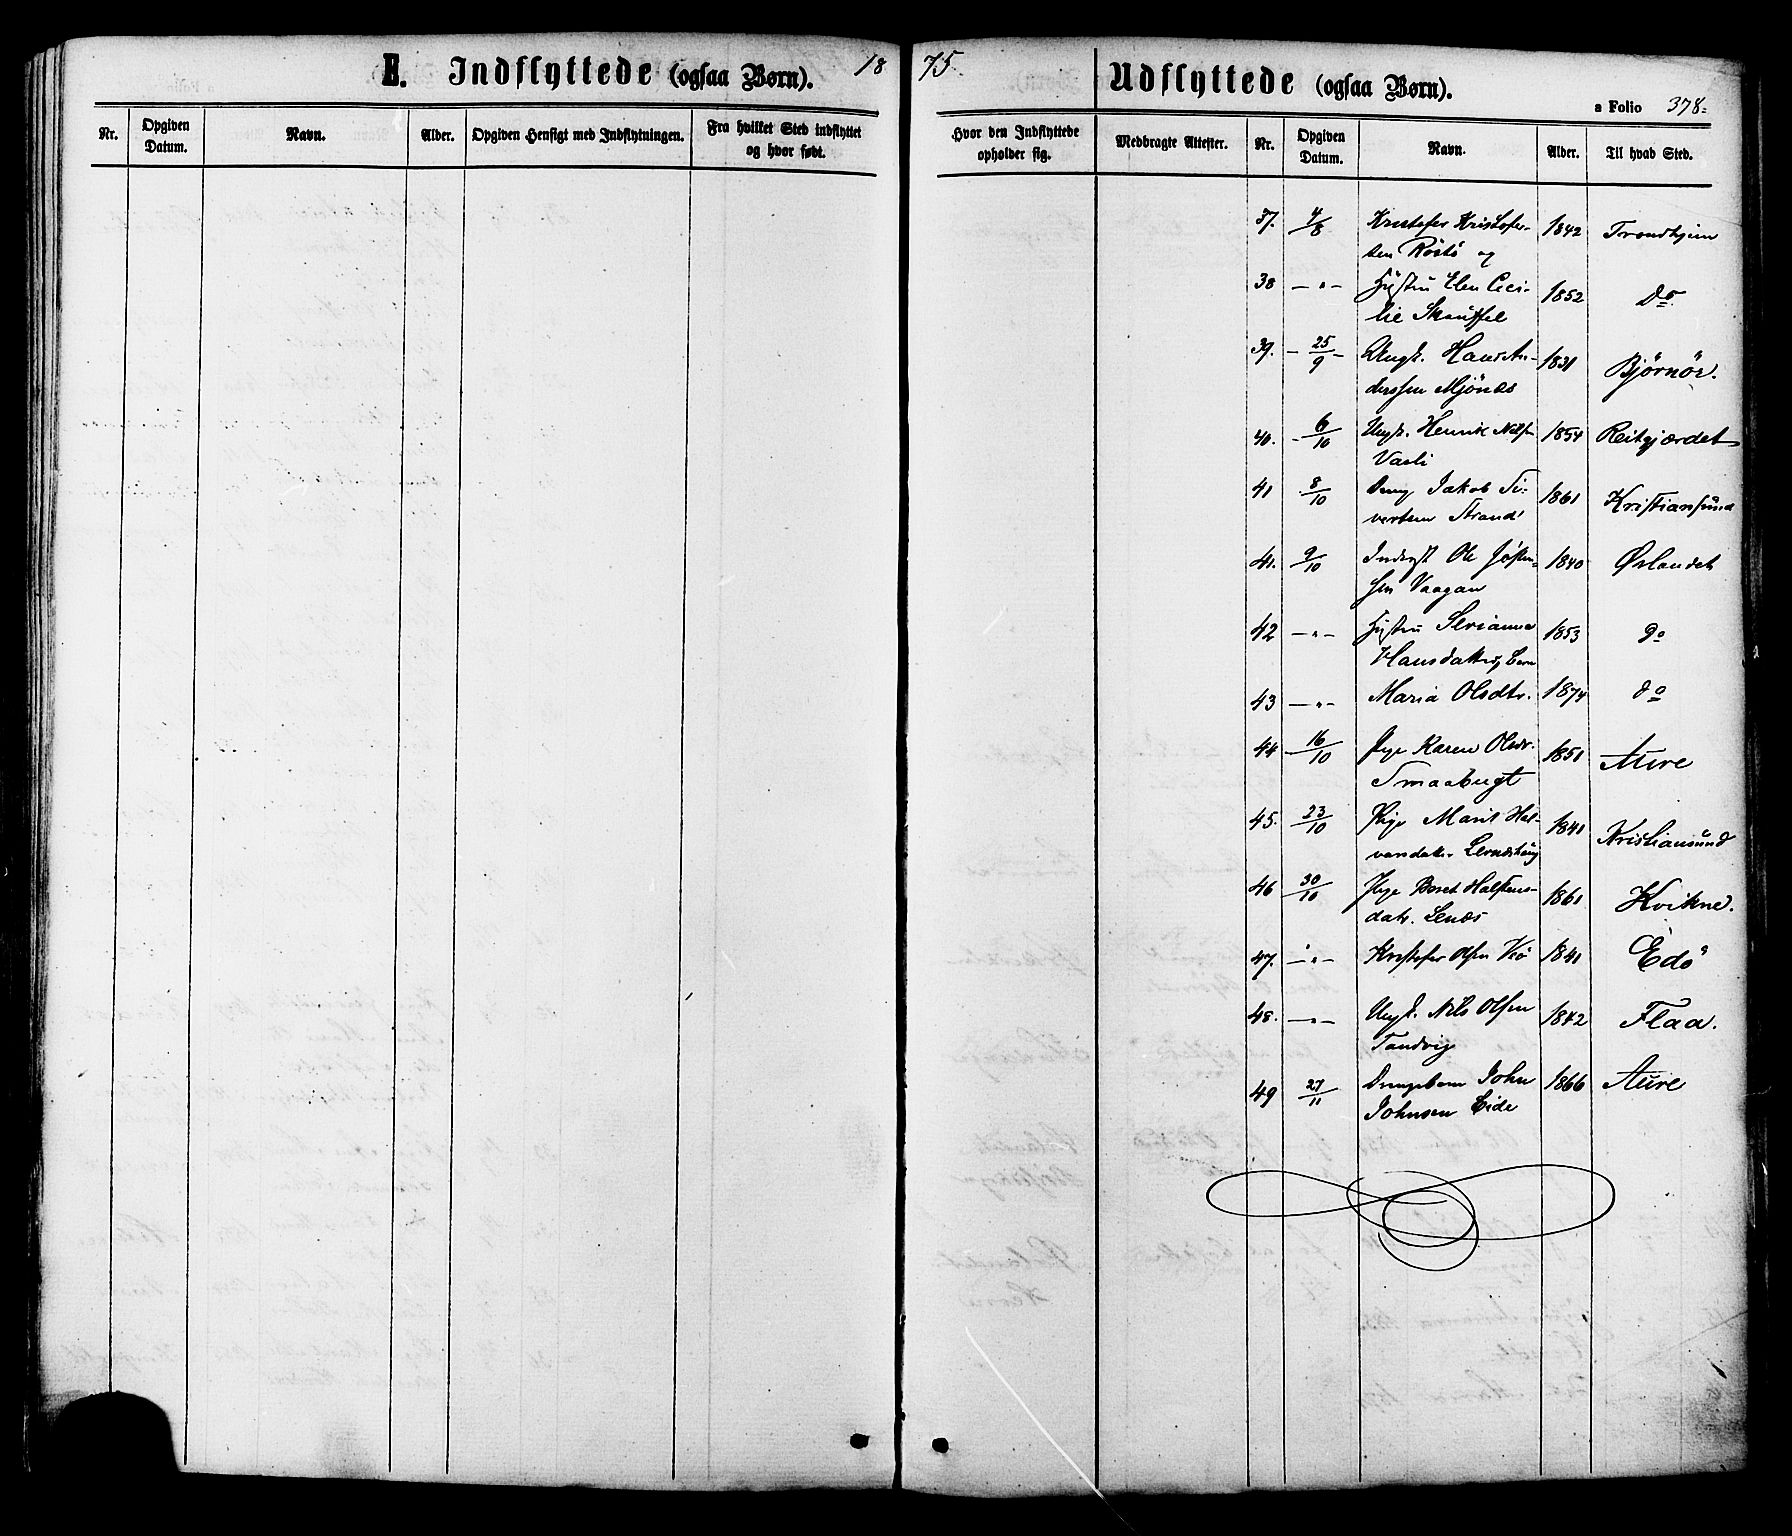 E. Indflyttede (ogsaa Børn). 18
75. Udflyttede (ogsaa Børn).
a Folio 378.
Nr. Opgiven Datum. Navn. Alder. Opgiven Hensigt med Indflytningen. Fra hvilket Sted indflyttet og hvor født.
Hvor den Indflyttede opholder sig. Medbragte Attester. Nr. Opgiven Datum. Navn. Alder. Til hvad Sted.
37. 4/8 Kristofer Kristofer- 1842 Trondhjem
sen Röstö og
38 — " — Hustru Elen Ceci- 1852 Do
lie Skauffel
39. 25/9 Ungk. Hans An- 1831 Bjørnør.
derssen Mjönæs
40. 6/10 Ungk. Henrik Nils 1854 Reitgjærdet
Vasli
41 8/10 Dreng Jakob Si- 1861 Kristiansund
vertsen Strand
41. 9/10 Inderst Ole 1840 Ørlandet
sen Vaagan
42 — " — Hustru Serianna 1853 do
Hansdatter, Barn
43 — " — Maria Olsdtr. 1874 do
44 16/10 Pige Karen Olsdr. 1851 Aure
Smaabugt
45. 23/10 Pige Marit Hal- 1841 Kristiansund
vorsdatr.
46 30/10 Pige Beret Halstens- 1861 Kvikne.
datr. Lenæs
47. — " — Kristofer Olsen 1841 Edö
48. — " — Ungk. Nils Olsen 1842 Flaa.
Tandvig
49 27/11 Drengebarn John 1866 Aure
Johnsen Eide